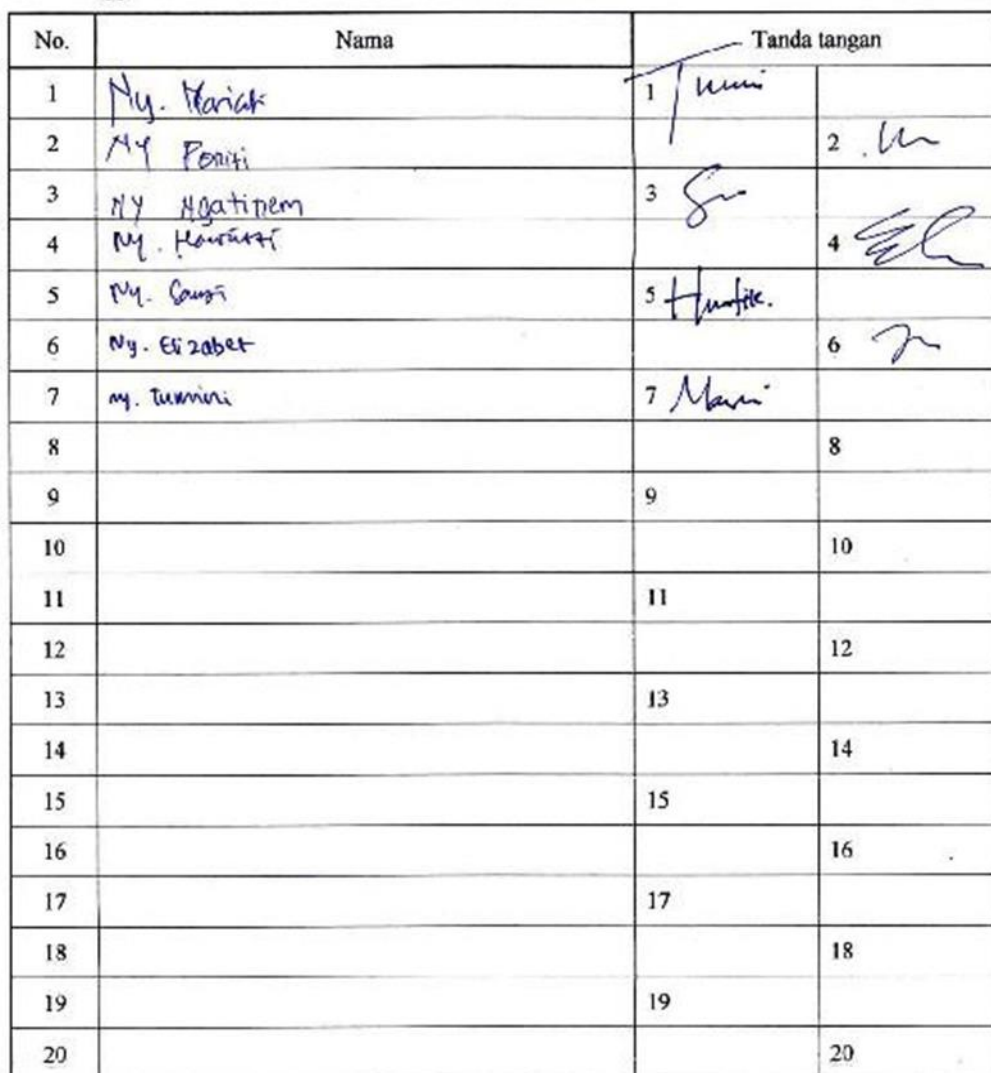 No. Nama Tanda tangan
1 Ny. Mariati 1
2 NY Poniti 2
3 NY Ngatinem 3
4 Ny. 4
5 Ny. 5
6 Ny. Elizabet 6
7 ny. tumini 7
8 8
9 9
10 10
11 11
12 12
13 13
14 14
15 15
16 16
17 17
18 18
19 19
20 20